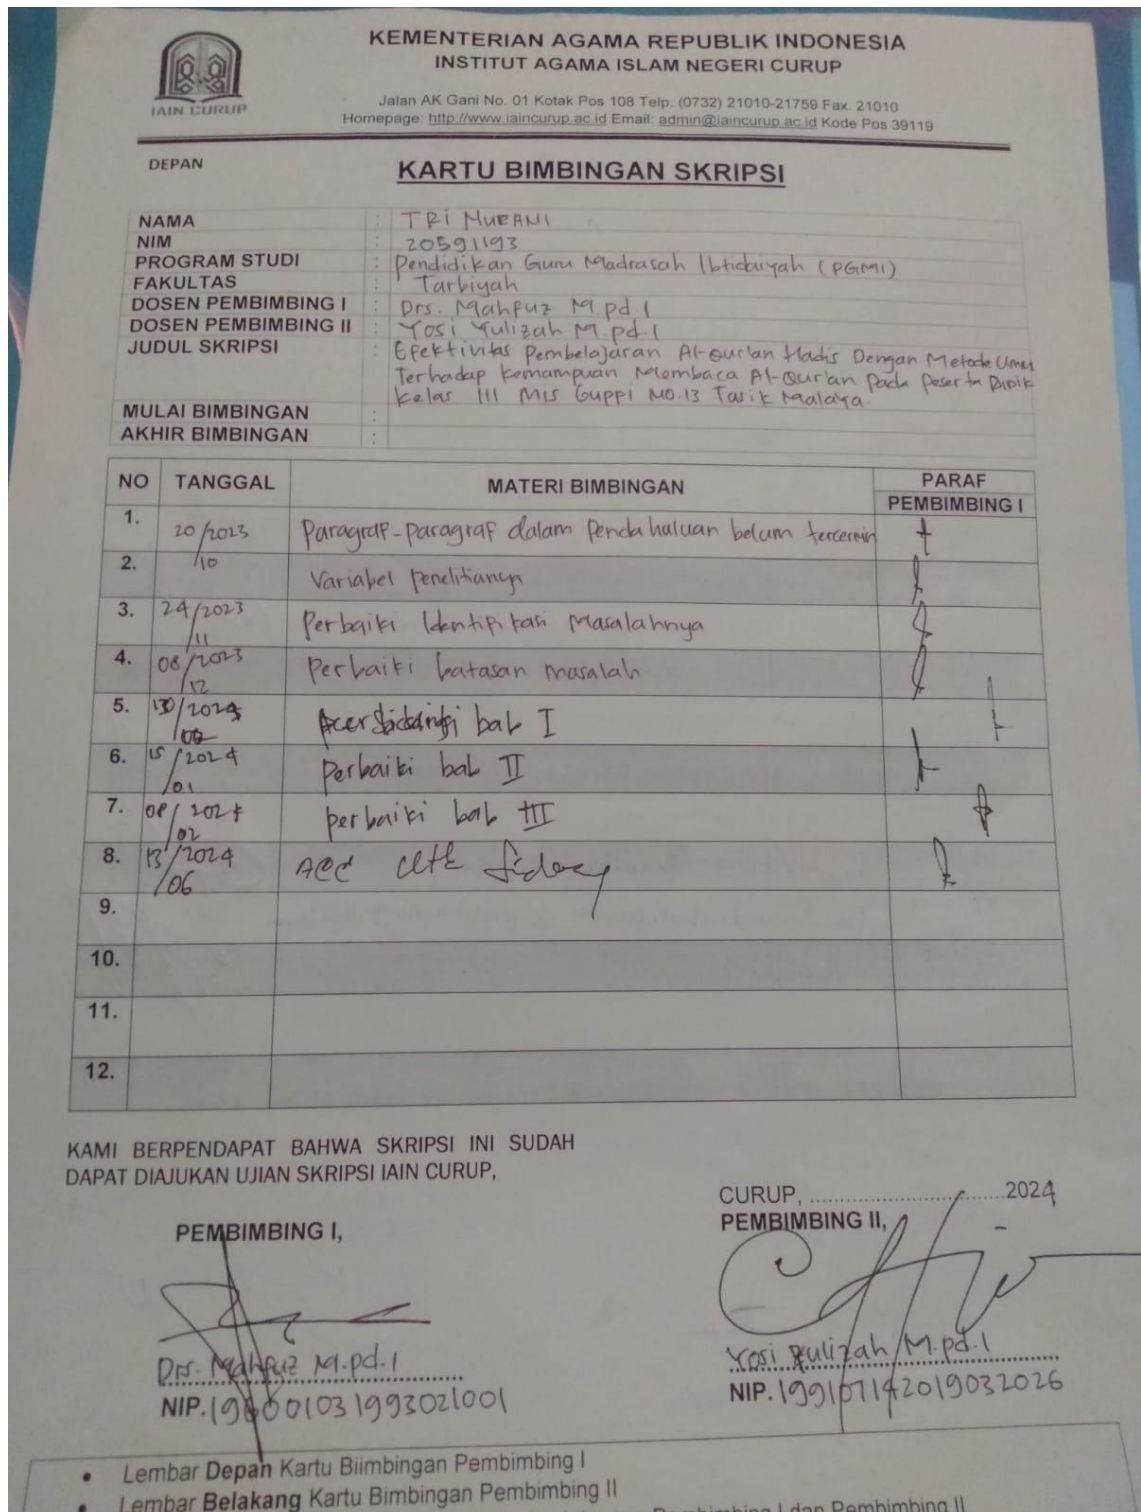 KEMENTERIAN AGAMA REPUBLIK INDONESIA
INSTITUT AGAMA ISLAM NEGERI CURUP
IAIN CURUP
Jalan AK Gani No. 01 Kotak Pos 108 Telp. (0732) 21010-21759 Fax. 21010
Homepage: http://www.iaincurup.ac.id Email: admin@iaincurup.ac.id Kode Pos 39119
DEPAN
KARTU BIMBINGAN SKRIPSI
NAMA : TRI MURANI
NIM : 20591193
PROGRAM STUDI : Pendidikan Guru Madrasah Ibtidaiyah (PGMI)
FAKULTAS : Tarbiyah
DOSEN PEMBIMBING I : Drs. Mahfuz M.pd.I
DOSEN PEMBIMBING II : Yosi Yulizah M.pd.I
JUDUL SKRIPSI : Efektivitas Pembelajaran Al-Qur'an Hadis Dengan Metode Ummi
Terhadap Kemampuan Membaca Al-Qur'an Pada Peserta Didik
Kelas III Mis Guppi No.13 Tasik Malaya.
MULAI BIMBINGAN :
AKHIR BIMBINGAN :
NO TANGGAL MATERI BIMBINGAN PARAF
PEMBIMBING I
1. 20/2023 Paragraf-paragraf dalam Pendahuluan belum tercermin
2. /10 Variabel penelitianya
3. 24/2023 /11 Perbaiki Identifikasi Masalahnya
4. 08/2023 /12 Perbaiki batasan masalah
5. bab I
6. 15/2024 /01 Perbaiki bab II
7. /02 perbaiki bab III
8. 13/2024 /06 Acc utk Sidang
9.
10.
11.
12.
KAMI BERPENDAPAT BAHWA SKRIPSI INI SUDAH
DAPAT DIAJUKAN UJIAN SKRIPSI IAIN CURUP,
CURUP, ..............................2024
PEMBIMBING I,
PEMBIMBING II,
Drs. Mahfuz M.pd.I
NIP. 196001031993021001
Yosi Yulizah M.pd.I
NIP. 199107142019032026
• Lembar Depan Kartu Biimbingan Pembimbing I
• Lembar Belakang Kartu Bimbingan Pembimbing II
Pembimbing I dan Pembimbing II